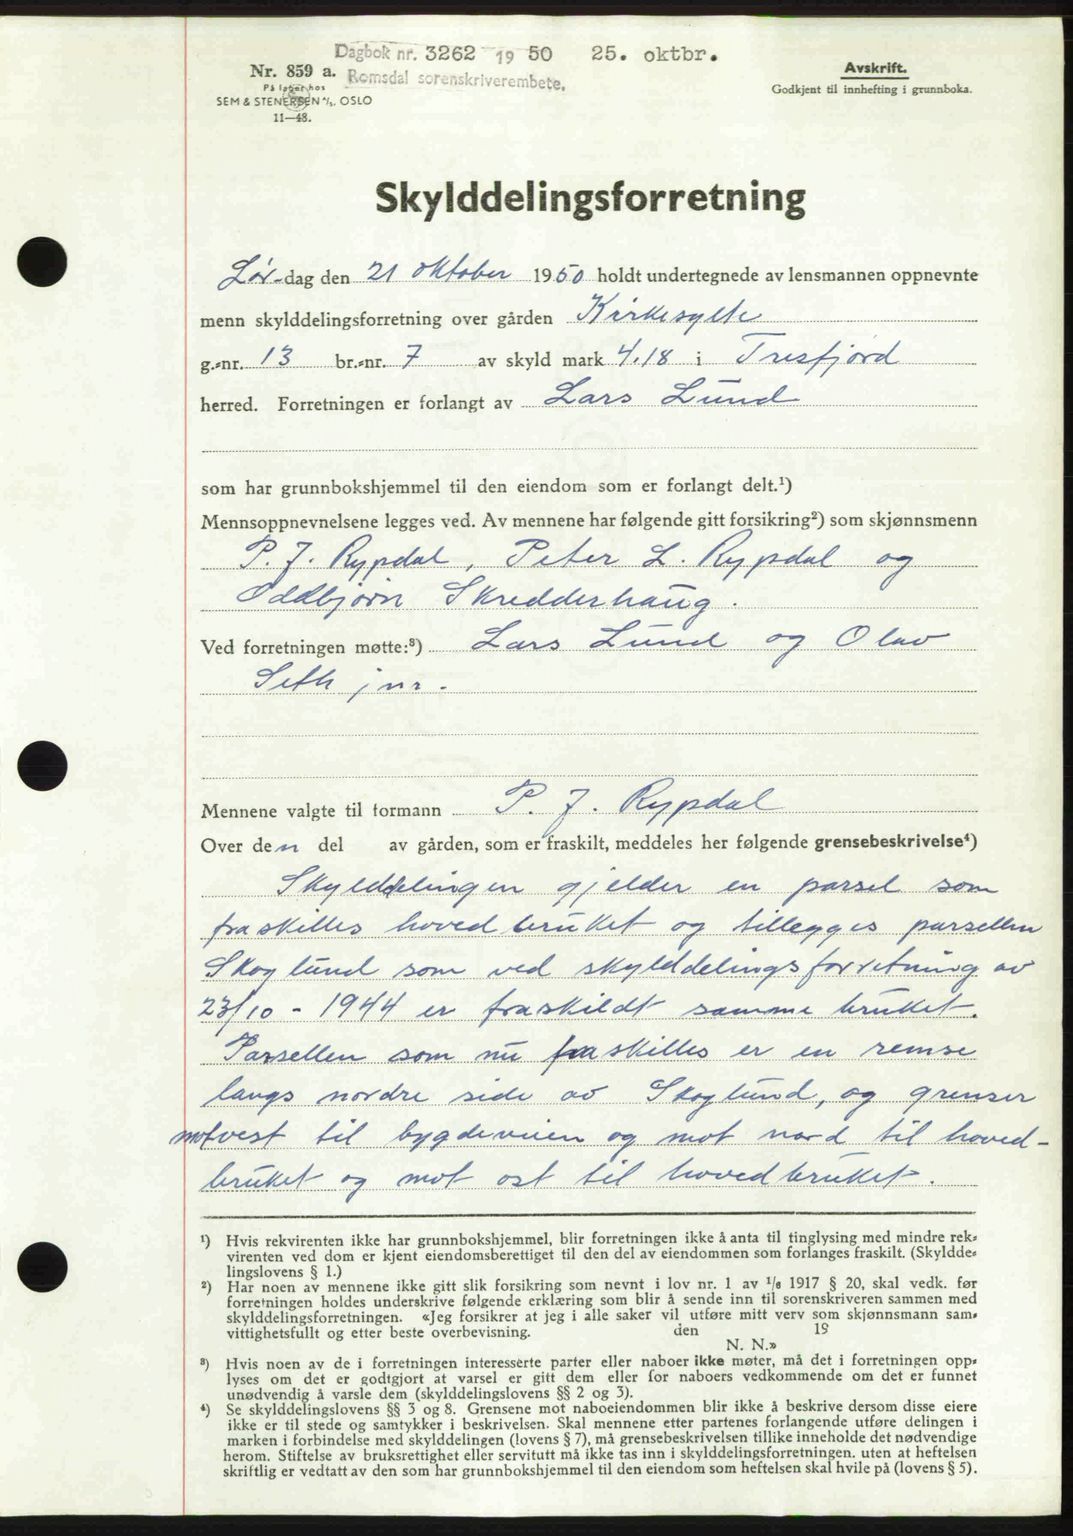 Dagbok nr. 3262 19 50 25. oktbr.
Romsdal sorenskriverembete.
Nr. 859 a.
På lager hos
SEM & STENERSEN A/S, OSLO
11—48.
Avskrift.
Godkjent til innhefting i grunnboka.
Skylddelingsforretning
Lør-dag den 21 oktober 1950 holdt undertegnede av lensmannen oppnevnte
menn skylddelingsforretning over gården Kirkesylte
g.-nr. 13 br.-nr. 7 av skyld mark 4.18 i Tresfjord
herred. Forretningen er forlangt av Lars Lund
som har grunnbokshjemmel til den eiendom som er forlangt delt.¹)
Mennsoppnevnelsene legges ved. Av mennene har følgende gitt forsikring²) som skjønnsmenn
P. J. Rypdal, Peter L. Rypdal og
Oddbjørn Skredderhaug.
Ved forretningen møtte:³) Lars Lund og Olav
Seth jnr.
Mennene valgte til formann P. J. Rypdal
Over den del av gården, som er fraskilt, meddeles her følgende grensebeskrivelse⁴)
Skylddelingen gjelder en parsel som
fraskilles hovedbruket og tillegges parsellen
Skoglund som ved skylddelingsforretning av
23/10 - 1944 er fraskildt samme bruket.
Parsellen som nu fraskilles er en remse
langs nordre side av Skoglund, og grenser
mot vest til bygdeveien og mot nord til hoved-
bruket og mot ost til hovedbruket.
¹) Hvis rekvirenten ikke har grunnbokshjemmel, blir forretningen ikke å anta til tinglysing med mindre rek-
virenten ved dom er kjent eiendomsberettiget til den del av eiendommen som forlanges fraskilt. (Skyldde-
lingslovens § 1.)
²) Har noen av mennene ikke gitt slik forsikring som nevnt i lov nr. 1 av 1/6 1917 § 20, skal vedk. før
forretningen holdes underskrive følgende erklæring som blir å sende inn til sorenskriveren sammen med
skylddelingsforretningen. «Jeg forsikrer at jeg i alle saker vil utføre mitt verv som skjønnsmann sam-
vittighetsfullt og etter beste overbevisning. den 19
N. N.»
³) Hvis noen av de i forretningen interesserte parter eller naboer ikke møter, må det i forretningen opp-
lyses om det er godtgjort at varsel er gitt dem eller for naboers vedkommende om det er funnet
unødvendig å varsle dem (skylddelingslovens §§ 2 og 3).
⁴) Se skylddelingslovens §§ 3 og 8. Grensene mot naboeiendommen blir ikke å beskrive dersom disse eiere
ikke er til stede og samtykker i beskrivelsen. Skal mennene etter partenes forlangende utføre delingen i
marken i forbindelse med skylddelingen (lovens § 7), må grensebeskrivelsen tillike inneholde det nødvendige
herom. Stiftelse av bruksrettighet eller servitutt må ikke tas inn i skylddelingsforretningen. uten at heftelsen
skriftlig er vedtatt av den som har grunnbokshjemmel til den eiendom som heftelsen skal hvile på (lovens § 5).